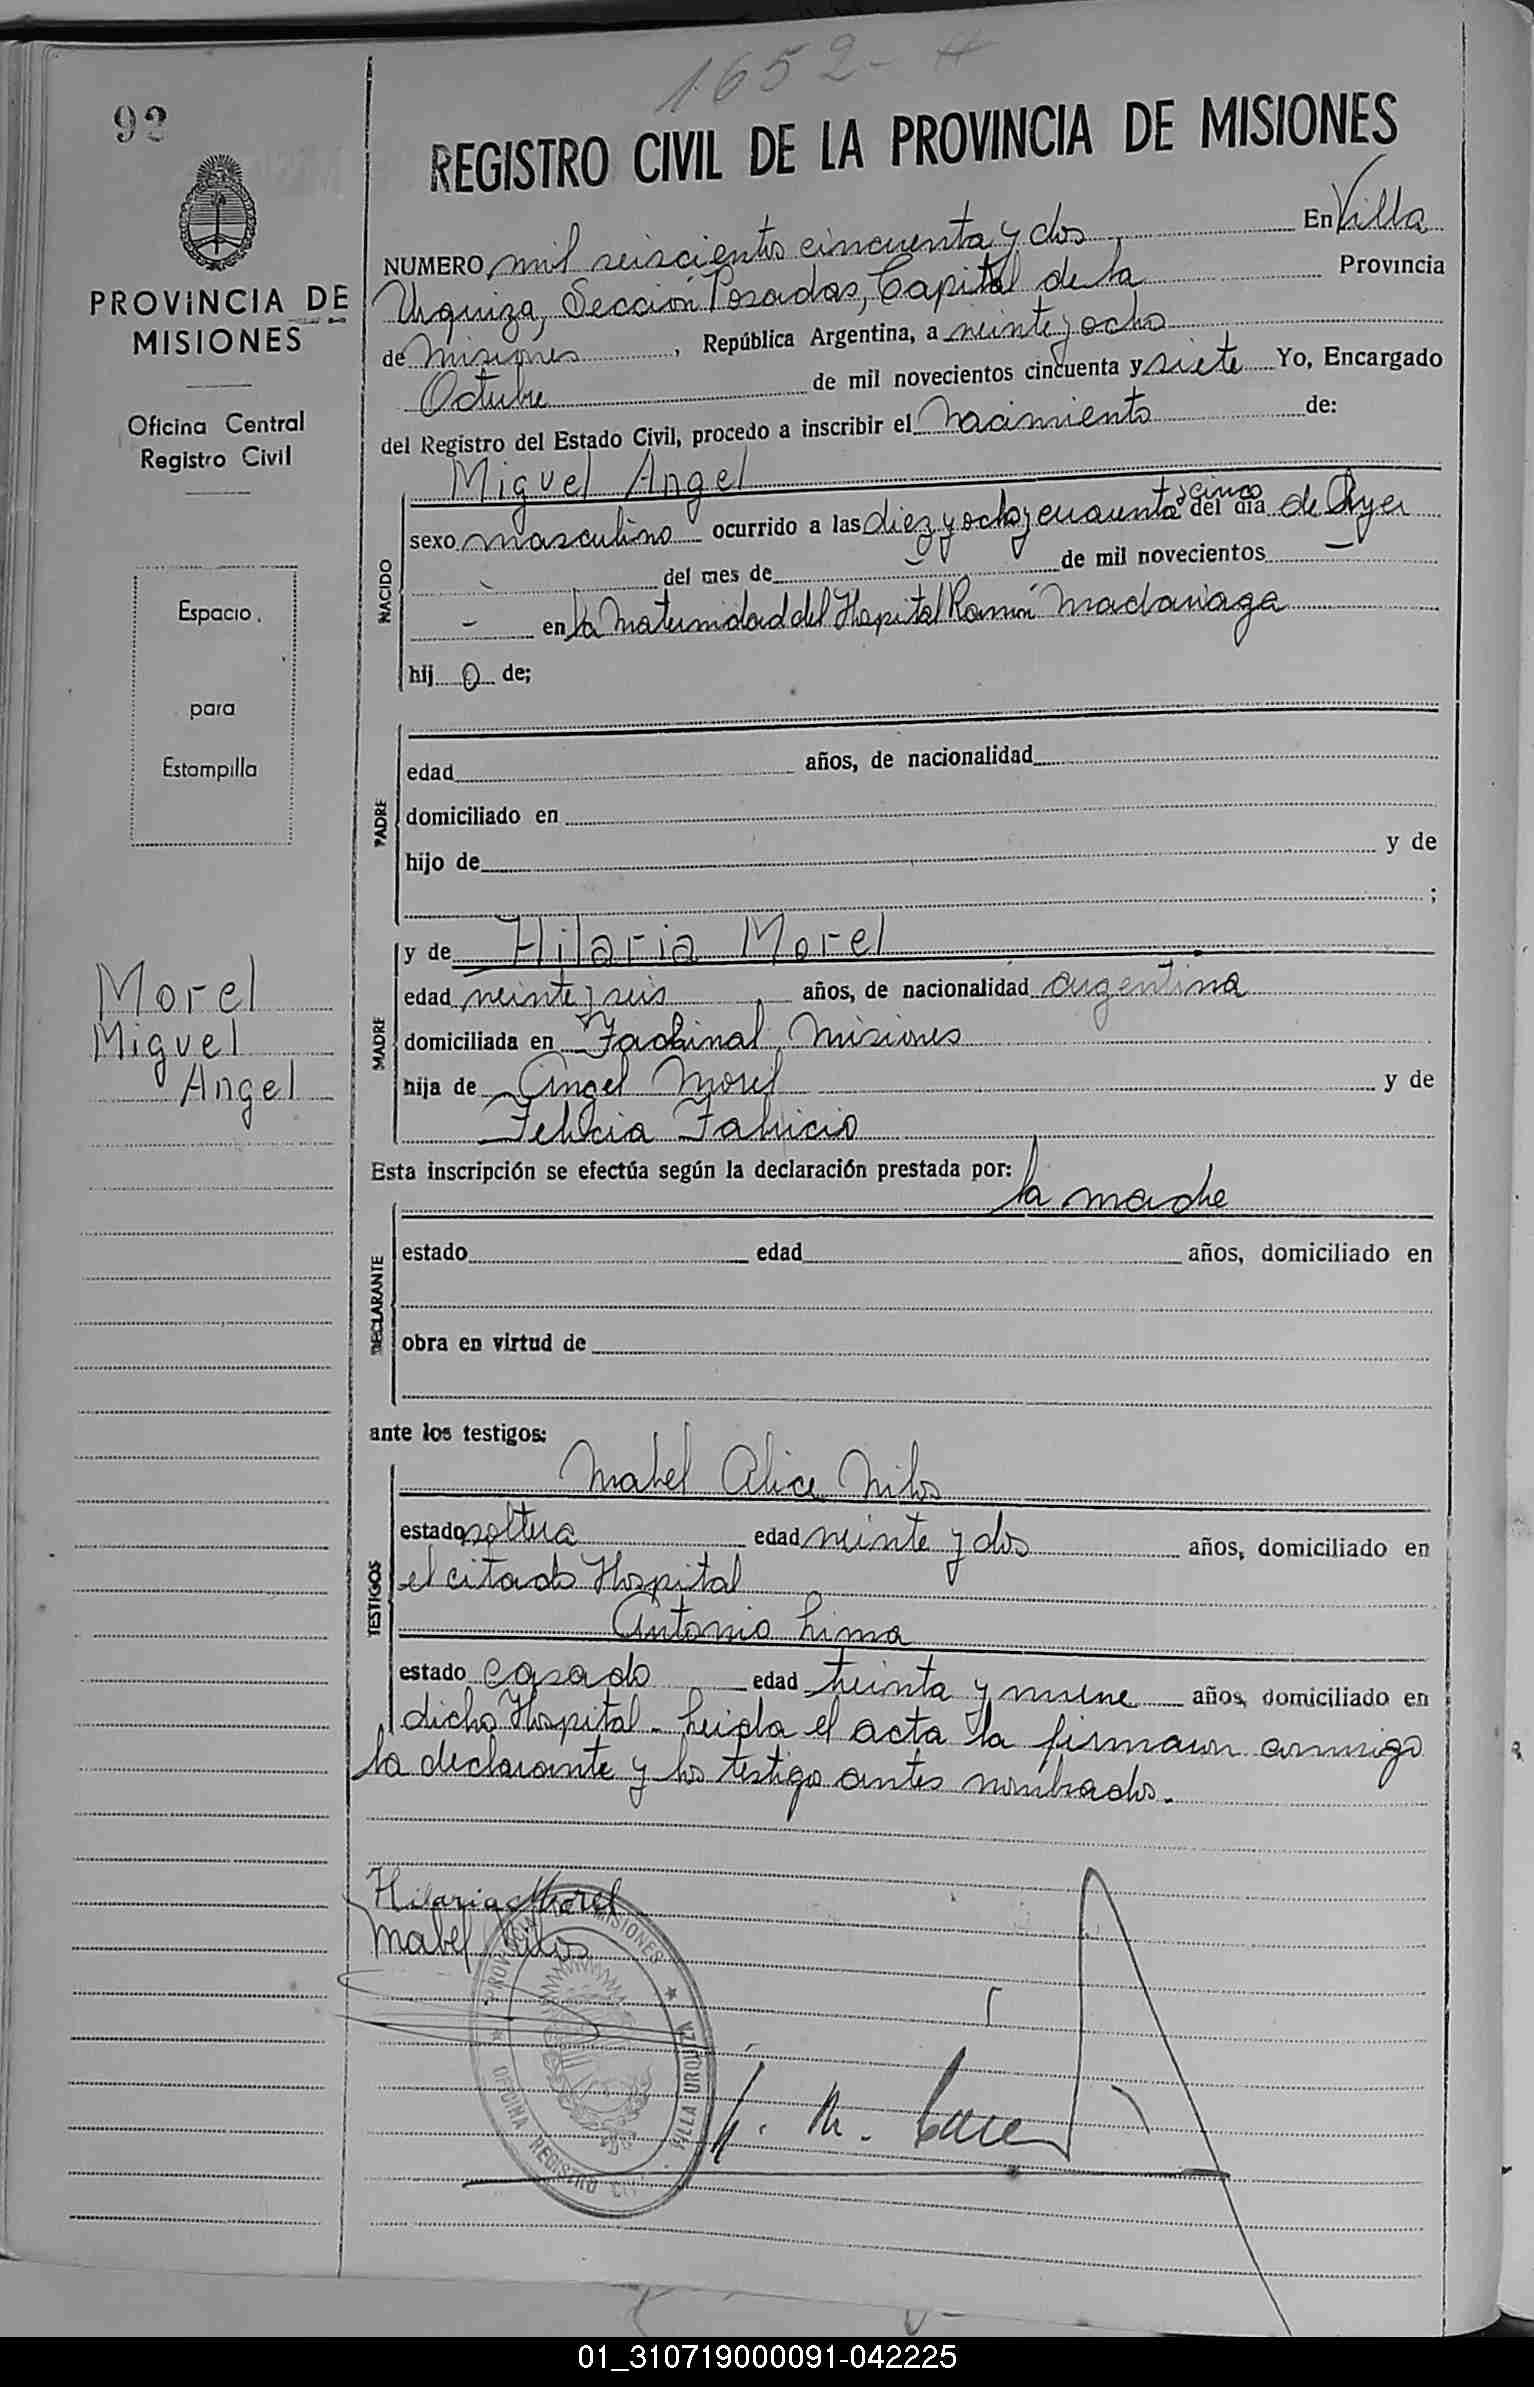 1652-
92
REGISTRO CIVIL DE LA PROVINCIA DE MISIONES
PROVINCIA DE
MISIONES
Oficina Central
Registro Civil
Espacio
para
Estampilla
Morel
Miguel
Angel
NUMERO mil seiscientos cincuenta y dos En Villa
Urquiza, Sección Posadas, Capital de la Provincia
de Misiones, República Argentina, a veinte y ocho
Octubre de mil novecientos cincuenta y siete Yo, Encargado
del Registro del Estado Civil, procedo a inscribir el Nacimiento de:
Miguel Angel
NACIDO
y cinco
sexo masculino ocurrido a las diez y ocho y cuarenta del día de Ayer
- del mes de - de mil novecientos -
- en la Maternidad del Hospital Ramón Madariaga
hij o de;
PADRE
edad años, de nacionalidad
domiciliado en
hijo de y de
;
MADRE
y de Hilaria Morel
edad veinte y seis años, de nacionalidad argentina
domiciliada en Fachinal, Misiones
hija de Angel Morel y de
Felicia Fabricio
Esta inscripción se efectúa según la declaración prestada por:
la madre
DECLARANTE
estado edad años, domiciliado en
obra en virtud de
ante los testigos:
TESTIGOS
Mabel Alice
estado soltera edad veinte y dos años, domiciliado en
el citado Hospital
Antonio Lima
estado casado edad treinta y nueve años, domiciliado en
dicho Hospital - Leida el acta la firmaron conmigo
la declarante y los testigo antes nombrados.
Hilaria Morel
Mabel
PROVINCIA MISIONES
VILLA URQUIZA
OFICINA REGISTRO CIVIL
01_310719000091-042225